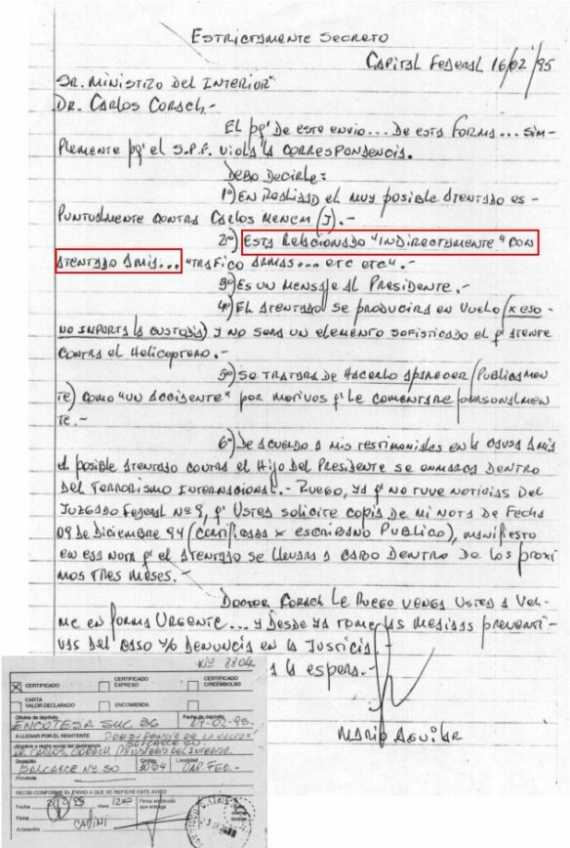 ESTRICTAMENTE SECRETO
CAPITAL FEDERAL 16/02/95
SR. MINISTRO DEL INTERIOR
DR. CARLOS CORACH.-
EL pq' DE ESTE ENVIO... DE ESTA FORMA... SIM-
PLEMENTE pq' EL S.P.F. VIOLA LA CORRESPONDENCIA.
DEBO DECIRLE:
1º) EN REALIDAD EL MUY POSIBLE ATENTADO ES -
PUNTUALMENTE CONTRA CARLOS MENEM (J).-
2º) ESTA RELACIONADO "INDIRECTAMENTE" CON
ATENTADO AMIA... "TRAFICO ARMAS... ETC ETC".-
3º) ES UN MENSAJE AL PRESIDENTE.-
4º) EL ATENTADO SE PRODUCIRA EN VUELO (X ESO -
NO IMPORTA LA CUSTODIA) Y NO SERA UN ELEMENTO SOFISTICADO EL q' ATENTE
CONTRA EL HELICOPTERO.-
5º) SE TRATARA DE HACERLO APARECER (PUBLICAMEN
TE) COMO "UN ACCIDENTE" POR MOTIVOS q' LE COMENTARE PERSONALMEN
TE.-
6º) DE ACUERDO A MIS TESTIMONIALES EN LA CAUSA AMIA
EL POSIBLE ATENTADO CONTRA EL HIJO DEL PRESIDENTE SE ENMARCA DENTRO
DEL TERRORISMO INTERNACIONAL.- RUEGO, YA q' NO TUVE NOTICIAS DEL
JUZGADO FEDERAL Nº 9, q' USTED SOLICITE COPIA DE MI NOTA DE FECHA
DE DICIEMBRE 94 (CERTIFICADA X ESCRIBANO PUBLICO), MANIFIESTO
EN ESA NOTA q' EL ATENTADO SE LLEVARA A CABO DENTRO DE LOS PROXI
MOS TRES MESES.-
DOCTOR CORACH LE RUEGO VENGA USTED A VER-
ME EN FORMA URGENTE... Y DESDE YA TOME LAS MEDIDAS PREVENTI-
VAS DEL CASO Y/O DENUNCIA EN LA JUSTICIA
A LA ESPERA.-
MARIO AGUILAR
Nº
CERTIFICADO
CERTIFICADO EXPRESO
CERTIFICADO C/REEMBOLSO
CARTA VALOR DECLARADO
ENCOMIENDA
Oficina de depósito
Fecha de depósito
ENCOTESA SUC 36
A LLENAR POR EL REMITENTE
BALCARCE 50
DR CARLOS CORACH MINISTRO DEL INTERIOR
Domicilio
Localidad
BALCARCE Nº 50
CAP FED.-
Provincia
RECIBI CONFORME EL ENVIO A QUE SE REFIERE ESTE AVISO
Fecha
Hora
Firma
Aclaración